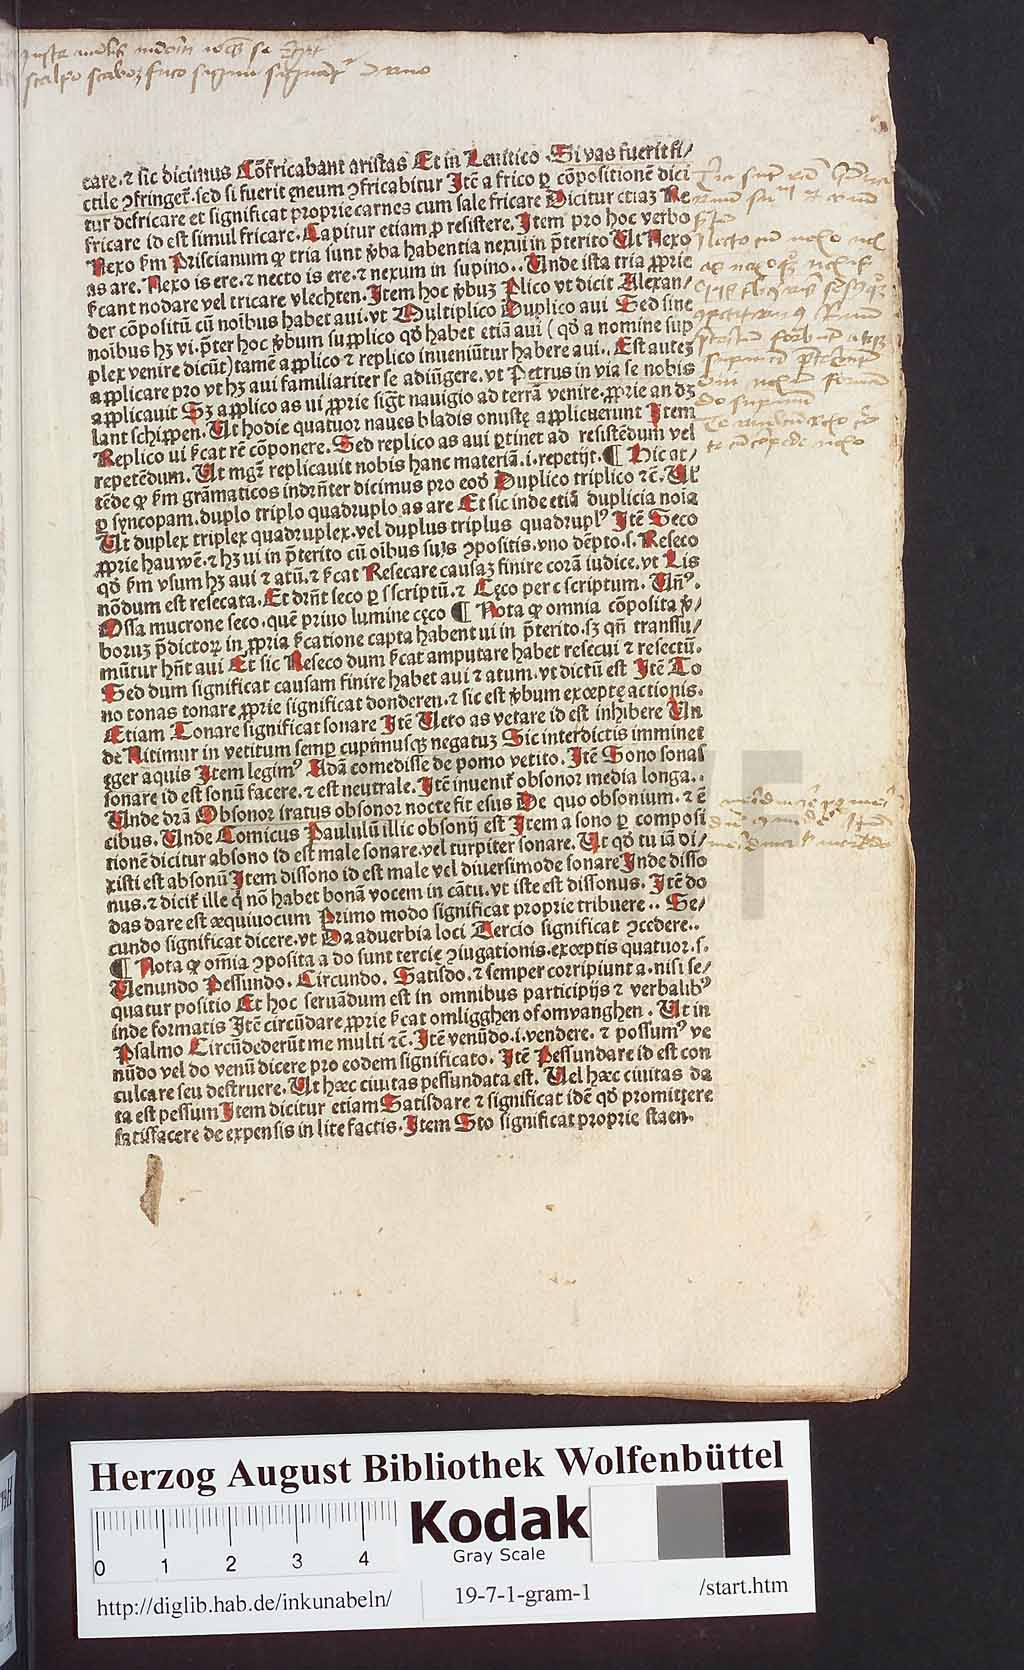 care. ⁊ sic dicimus Cōfricabant aristas Et in Leuitico. Si vas fuerit fi/
ctile ꝯfringet᷑. sed si fuerit ęneum ꝯfricabitur Itē a frico ꝑ cōpositionē dici
tur defricare et significat proprie carnes cum sale fricare Dicitur etiaꝫ Re
fricare id est simul fricare. Capitur etiam. ꝓ resistere. Item pro hoc verbo
Nexo ẜm Priscianum ꝙ tria sunt ꝟba habentia nexui in p̄terito Ut Nexo
as are. Nexo is ere. ⁊ necto is ere. ⁊ nexum in supino.. Unde ista tria ꝓprie
ẜcant nodare vel tricare vlechten. Item hoc ꝟbuꝫ Plico vt dicit Alexan/
der cōpositū cū noībus habet aui. vt Multiplico Duplico aui Sed sine
noībus hꝫ vi. p̄ter hoc ꝟbum supplico qḋ habet etiā aui ( qḋ a nomine sup
plex venire dicūt) tamē applico ⁊ replico inueniūtur habere aui.. Est auteꝫ
applicare pro vt hꝫ aui familiariter se adiūgere. vt Petrus in via se nobis
applicauit Sꝫ applico as ui ꝓprie sigt̄ nauigio ad terrā venire. ꝓprie an dꝫ
lant schippen. Ut hodie quatuor naues bladis onustę applicuerunt Item
Replico ui ẜcat rē cōponere. Sed replico as aui ꝑtinet ad resistēdum vel
repetēdum. Ut mgꝝ replicauit nobis hanc materiā. i. repetijt. ¶ Hic at/
tēde ꝙ ẜm grāmaticos indrn̄ter dicimus pro eoḋ Duplico triplico ⁊c̄. Ul᷑
ꝑ syncopam. duplo triplo quadruplo as are Et sic inde etiā duplicia noīa
Ut duplex triplex quadruplex. vel duplus triplus quadrupl⁹ Itē Seco
ꝓprie hauwē. ⁊ hꝫ ui in p̄terito cū oībus suis ꝯpositis. vno dēpto. s. Reseco
qḋ ẜm vsum hꝫ aui ⁊ atū. ⁊ ẜcat Resecare causaꝫ finire corā iudice. vt Lis
nōdum est resecata. Et drn̄t seco ꝑ s scriptū. ⁊ Cęco per c scriptum. Un̄⁹.
Ossa mucrone seco. quē priuo lumine cęco ¶ Nota ꝙ omnia cōposita ꝟ/
boruꝫ p̄dictoꝝ in ꝓpria ẜcatione capta habent ui in p̄terito. sꝫ qn̄ transsu/
mūtur hn̄t aui Et sic Reseco dum ẜcat amputare habet resecui ⁊ resectū.
Sed dum significat causam finire habet aui ⁊ atum. vt dictū est Itē To
no tonas tonare ꝓprie significat donderen. ⁊ sic est ꝟbum exceptę actionis.
Etiam Tonare significat sonare Itē Ueto as vetare id est inhibere Un
de Nitimur in vetitum semꝑ cupimusqꝫ negatuꝫ Sic interdictis imminet
ęger aquis Item legim⁹ Adā comedisse de pomo vetito. Itē Sono sonas
sonare id est sonū facere. ⁊ est neutrale. Itē inuenit᷑ obsonor media longa..
Unde dr̄ā Obsonor iratus obsonor nocte fit esus De quo obsonium. ⁊ ē
cibus. Unde Comicus Paululū illic obsonij est Item a sono ꝑ composi
tionē dicitur absono id est male sonare. vel turpiter sonare. Ut qḋ tu iā di/
xisti est absonū Item dissono id est male vel diuersimode sonare Inde disso
nus. ⁊ dicit᷑ ille q̇ nō habet bonā vocem in cātu. vt iste est dissonus. Itē do
das dare est æquiuocum Primo modo significat proprie tribuere.. Se/
cundo significat dicere. vt Da aduerbia loci Tercio significat ꝯcedere..
¶ Nota ꝙ om̄ia ꝯposita a do sunt tercię ꝯiugationis. exceptis quatuor. s.
Uenundo Pessundo. Circundo. Satisdo. ⁊ semper corripiunt a. nisi se/
quatur positio Et hoc seruādum est in omnibus participijs ⁊ verbalib⁹
inde formatis Itē circūdare ꝓprie ẜcat omligghen of omvanghen. Ut in
Psalmo Circūdederūt me multi ⁊c̄. Itē venūdo. i. vendere. ⁊ possum⁹ ve
nūdo vel do venū dicere pro eodem significato. Itē Pessundare id est con
culcare seu destruere. Ut hæc ciuitas pessundata est. Uel hæc ciuitas da
ta est pessum Item dicitur etiam Satisdare ⁊ significat idē qḋ promittere
satisfacere de expensis in lite factis. Item Sto significat proprie staen.
Herzog August Bibliothek Wolfenbüttel
0 1 2 3 4
Kodak
Gray Scale
http://diglib.hab.de/inkunabeln/
19-7-1-gram-1
/start.htm